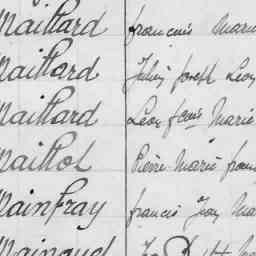 Maillard francois Marie
Maillard Julien Joseph Léon
Maillard Léon fcois Marie
Maillol Pierre Marie
Mainfray francis Jean
Mainaud